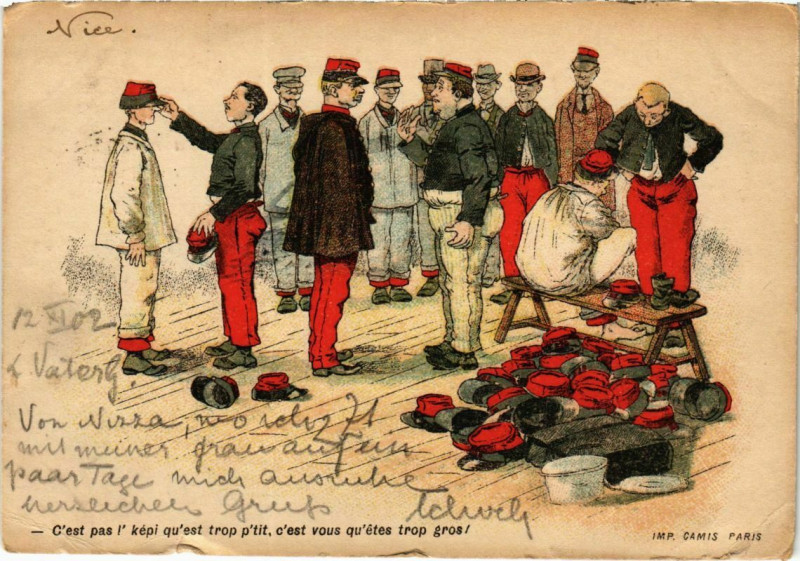 Nice.
12 XI 02
L Vaterg.
Von Nizza, wo ich zt
mit meiner Frau auf ein
paar Tage mich ausruhe
herzlichen Gruß
— C'est pas l' képi qu'est trop p'tit, c'est vous qu'êtes trop gros!
IMP. CAMIS PARIS